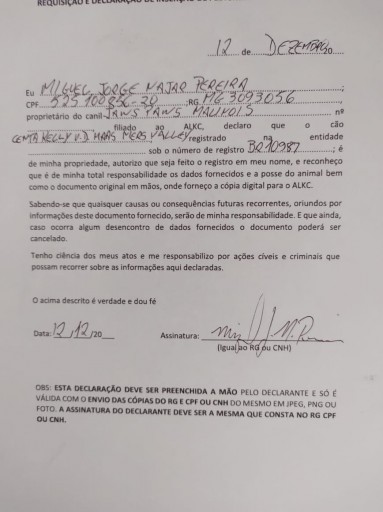 REQUISIÇÃO E DECLARAÇÃO DE INSERÇÃO DE
12 de DEZEMBRO 20
Eu MIGUEL JORGE NAJAR PEREIRA ;
CPF RG MG 3693056 ,
proprietário do canil JAWS PAWS MALINOIS nº
filiado ao ALKC, declaro que o cão
KELLY V.D MAAS MERS VALLEY registrado na entidade
sob o número de registro BR10987 ; é
de minha propriedade, autorizo que seja feito o registro em meu nome, e reconheço
que é de minha total responsabilidade os dados fornecidos e a posse do animal bem
como o documento original em mãos, onde forneço a cópia digital para o ALKC.
Sabendo-se que quaisquer causas ou consequências futuras recorrentes, oriundos por
informações deste documento fornecido, serão de minha responsabilidade. E que ainda,
caso ocorra algum desencontro de dados fornecidos o documento poderá ser
cancelado.
Tenho ciência dos meus atos e me responsabilizo por ações cíveis e criminais que
possam recorrer sobre as informações aqui declaradas.
O acima descrito é verdade e dou fé
Data: 12/12/20 Assinatura:
(Igual ao RG ou CNH)
OBS: ESTA DECLARAÇÃO DEVE SER PREENCHIDA A MÃO PELO DECLARANTE E SÓ É
VÁLIDA COM O ENVIO DAS CÓPIAS DO RG E CPF OU CNH DO MESMO EM JPEG, PNG OU
FOTO. A ASSINATURA DO DECLARANTE DEVE SER A MESMA QUE CONSTA NO RG CPF
OU CNH.